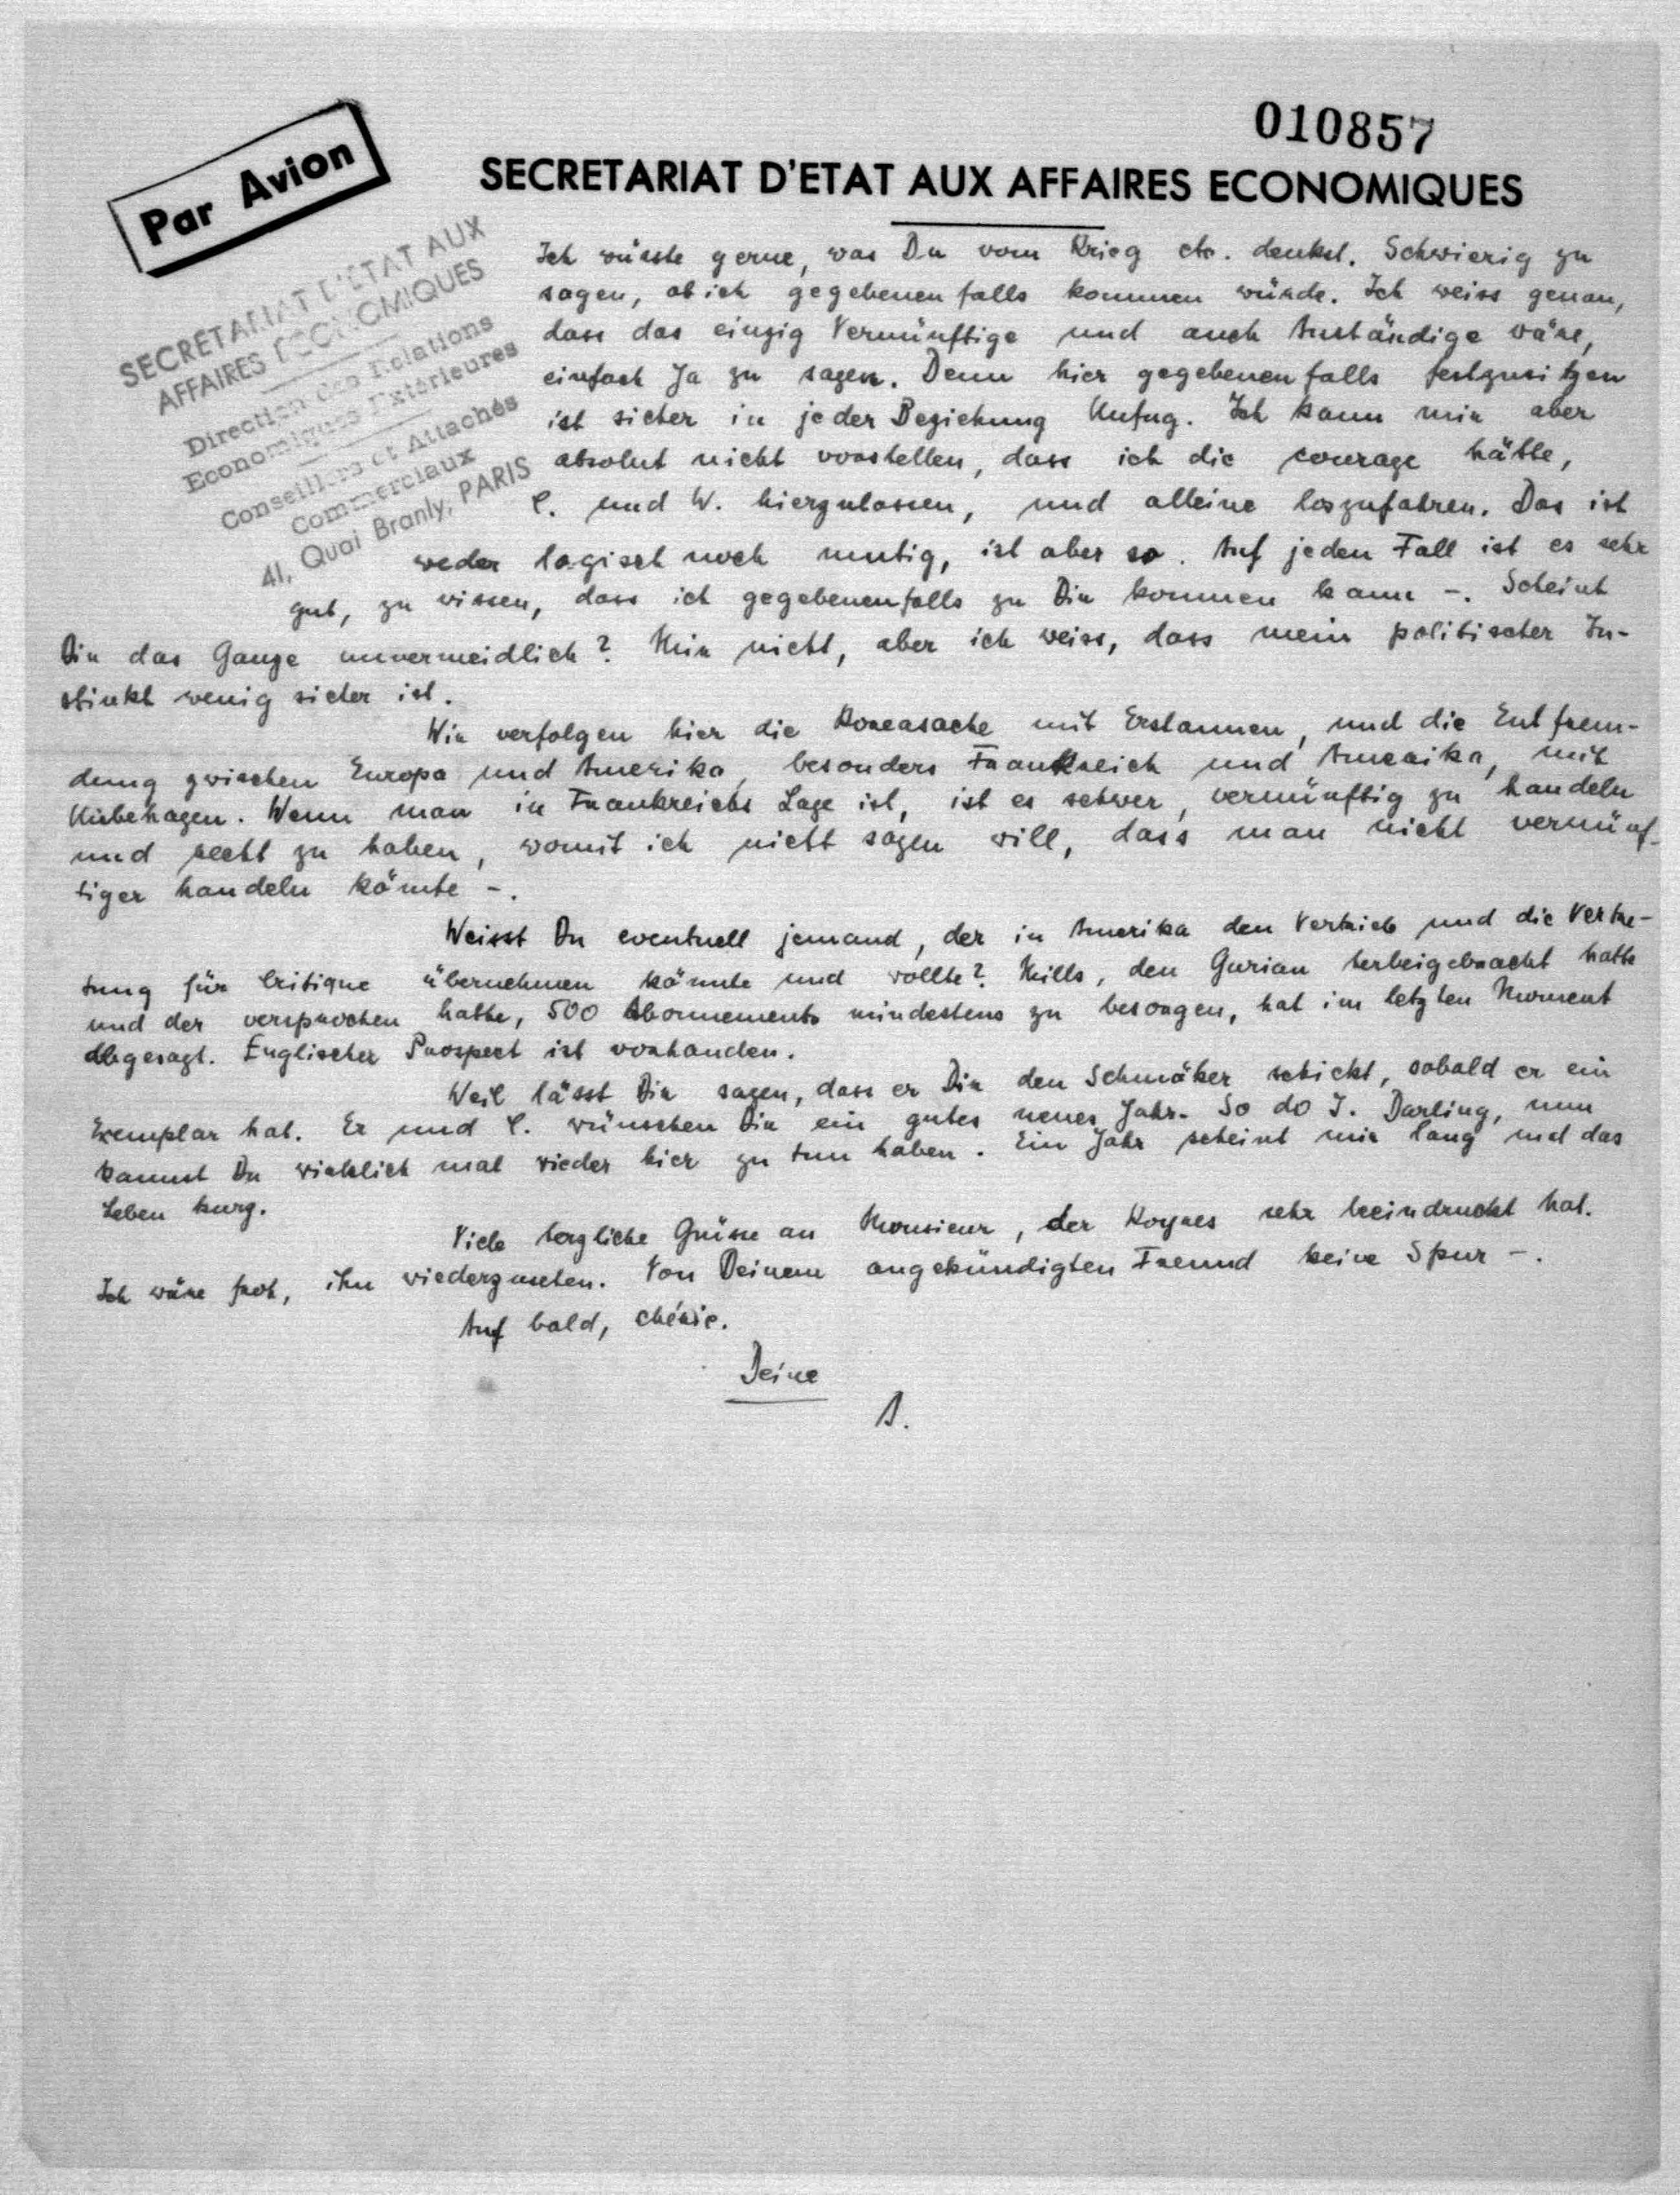 010857
Par Avion
SECRETARIAT D'ETAT AUX AFFAIRES ECONOMIQUES
SECRÉTARIAT D'ETAT AUX
AFFAIRES ECONOMIQUES
Direction des Relations
Economiques Extérieures
Conseillers et Attachés
Commerciaux
41, Quai Branly, PARIS
Ich wüsste gerne, was Du vom Krieg etc. denkst. Schwierig zu
sagen, ob ich gegebenenfalls kommen würde. Ich weiss genau,
dass das einzig Vernünftige und auch Anständige wäre,
einfach Ja zu sagen. Denn hier gegebenenfalls festzusitzen
ist sicher in jeder Beziehung Unfug. Ich kann mir aber
absolut nicht vorstellen, dass ich die courage hätte,
C. und W. hierzulassen, und alleine loszufahren. Das ist
weder logisch noch mutig, ist aber so. Auf jeden Fall ist es sehr
gut, zu wissen, dass ich gegebenenfalls zu Dir kommen kann -. Scheint
Dir das Ganze unvermeidlich? Mir nicht, aber ich weiss, dass mein politischer In-
stinkt wenig sicher ist.
Wir verfolgen hier die Koreasache mit Erstaunen, und die Entfrem-
dung zwischen Europa und Amerika, besonders Frankreich und Amerika, mit
Unbehagen. Wenn man in Frankreichs Lage ist, ist es schwer, vernünftig zu handeln
und recht zu haben, womit ich nicht sagen will, dass man nicht vernünf-
tiger handeln könnte -.
Weisst Du eventuell jemand, der in Amerika den Vertrieb und die Vertre-
tung für Critique übernehmen könnte und wollte? Mills, den Gurian herbeigebracht hatte
und der versprochen hatte, 500 Abonnements mindestens zu besorgen, hat im letzten Moment
abgesagt. Englischer Prospect ist vorhanden.
Weil lässt Dir sagen, dass er Dir den Schmöker schickt, sobald er ein
Exemplar hat. Er und C. wünschen Dir ein gutes neues Jahr. So do I. Darling, nun
kannst Du wirklich mal wieder hier zu tun haben. Ein Jahr scheint mir lang und das
Leben kurz.
Viele herzliche Grüsse an Monsieur, der Koyres sehr beeindruckt hat.
Ich wäre froh, ihn wiederzusehen. Von Deinem angekündigten Freund keine Spur -.
Auf bald, chérie.
Deine
A.